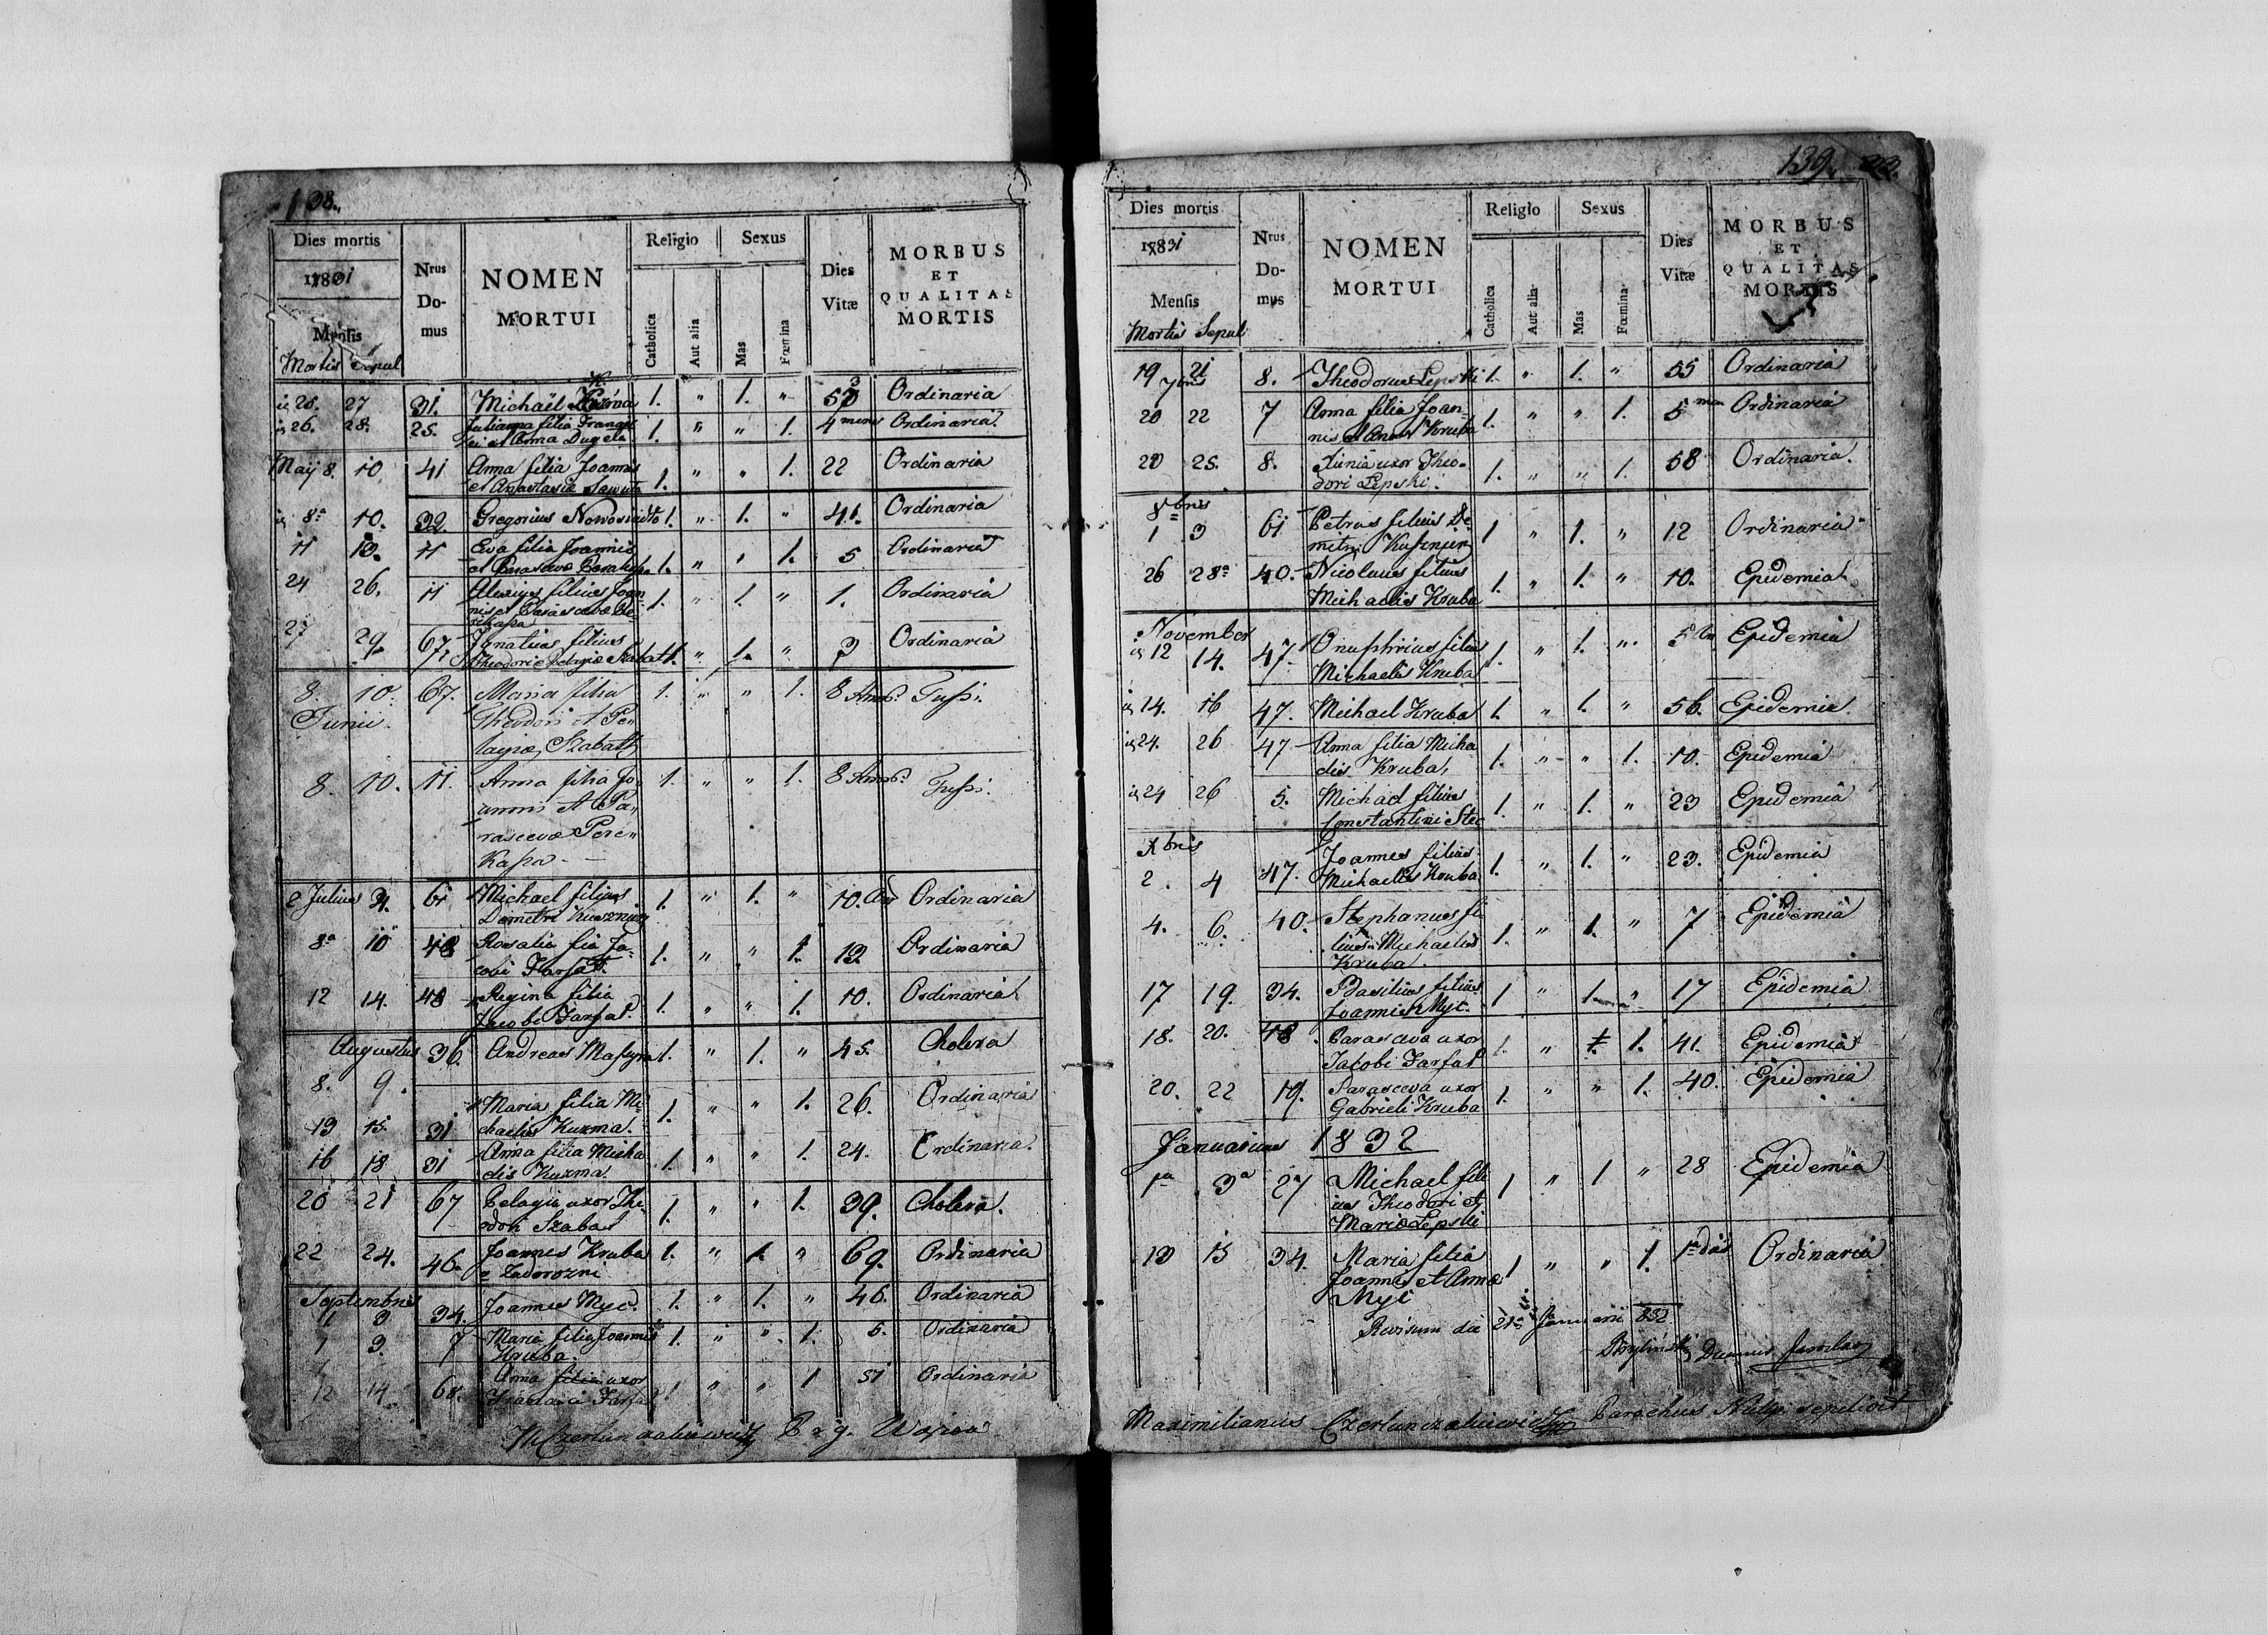 138.
Dies mortis
1831
Mensis
Mortis Sepul
Nrus Do-mus
NOMEN MORTUI
Religio
Catholica
Aut alia
Sexus
Mas
Fœmina
Dies Vitæ
MORBUS ET QUALITAS MORTIS
25. 27 31. Michaël Kuzma 1. " 1. " 53 Ordinaria
26. 28. 25. Julianna filia Francis
ci et Anna Dugela 1. " " 1. 4 mens Ordinaria
Maij 8. 10 41 Anna filia Joannis
et Anastasiæ 1. " " 1. 22 Ordinaria
8a 10. 32 Gregorius 1. " 1. " 41. Ordinaria
11 13. 11 Eva filia Joannis
et Parascevæ 1. " " 1. 5 Ordinaria
24 26. 11 Alexius filius Joan
nis et Parascevæ Pe
rekapa 1. " 1. " 1. Ordinaria
27 29 67 Ignatius filius
Theodori et Pelagiæ Szabatt 1. " 1. " 3 Ordinaria
8. 10. 67. Maria filia
Junii. Theodori et Pe
lagiæ, Szabatt 1. " " 1. 8 Tussi.
8. 10. 11. Anna filia Jo
annis et Pa"
rascevæ Pere"
Kapa - 1. " " 1. 8 Tussi.
2 Julius 4. 61 Michael filius
Demetri Kuszneer 1. " 1. " 10. An Ordinaria
8a 10 48 Rosalia fia Ja-
cobi Farfat. 1. " " 1. 13. Ordinaria
12 14. 48 Regina filia
Jacobi Farfat. 1. " " 1. 10. Ordinaria
Augustus 36. Andreas Maszyra 1. " 1. " 45. Cholera
8. 9.
13 15. 31 Maria filia Mi
chaelis Kuzma. 1. " " 1. 26. Ordinaria
16 18 31 Anna filia Micha
elis Kuzma. 1. " " 1. 24. Ordinaria.
20 21 67 Pelagia uxor The
odori Szabat 1. " " 1. 39. Cholera.
22 24. 46. Joannes Kruba
e Zadorozni 1. " 1. " 69. Ordinaria
Septembris
1 3 34. Joannes Myc. 1. " 1. " 46. Ordinaria
1 3. 7 Maria filia Joannis
Kruba. 1. " " 1. 5. Ordinaria
12 14 68. Anna filia uxor
Farfat 1. " " 1 51 Ordinaria
139. 22.
Dies mortis
1831
Mensis
Mortis Sepul
Nrus Do-mus
NOMEN MORTUI
Religio
Catholica
Aut alia
Sexus
Mas
Fœmina
Dies Vitæ
MORBUS ET QUALITAS MORTIS
19 21 8. Theodorus Lepski 1. " 1. " 55 Ordinaria
7bris
20 22 7 Anna filia Joan-
nis et Annæ Kruba 1. " " 1. 5 men Ordinaria
23 25. 8. Xenia uxor Theo-
dori Lepski. 1. " " 1. 58 Ordinaria.
8bris
1 3 61 Petrus filius De
metri Kuszneer 1 " 1. " 12 Ordinaria
26 28a 40. Nicolaus filius
Michaelis Kruba 1. " 1. " 10. Epidemia
November
12 14. 47. Onuphrius filius
Michaelis Kruba 1. " 1. " 5 An Epidemia
14. 16 47. Michael Kruba 1. " 1. " 56. Epidemia.
24. 26 47 Anna filia Micha
elis Kruba, 1. " " 1. 10. Epidemia
24 26 5. Michael filius
Constantini Stec 1. " 1. " 23 Epidemia
Xbris
2. 4 47. Joannes filius
Michaelis Kruba 1. " 1. " 23. Epidemia
4. 6. 40. Stephanus fi
lius Michaelis
Kruba. 1. " 1. " 7 Epidemia
17 19. 34. Basilius filius
Joannis Myc. 1 " 1. " 17 Epidemia
18. 20. 48 Parasceva uxor
Jacobi Farfat 1. " 1. 1. 41. Epidemia
20. 22 19. Parasceva uxor
Gabrieli Kruba 1. " " 1. 40. Epidemia
Januarius 1832
1a 3a 27 Michael fili
us Theodori et
Mariæ Lepski 1 " 1 " 28 Epidemia
13 15 34. Maria filia
Joannis et Annæ
Myc 1 " " 1. Ordinaria
Revisum die 21a Januarii 832
Maximilianus Parochus sepelivit